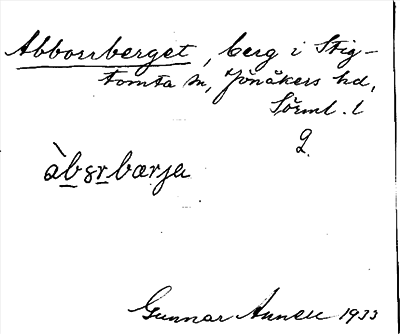 Abborrberget, berg i Stig-
tomta sn, Jönåkers hd,
Sörml. l
2.
àbȣrbærja
Gunnar 1933